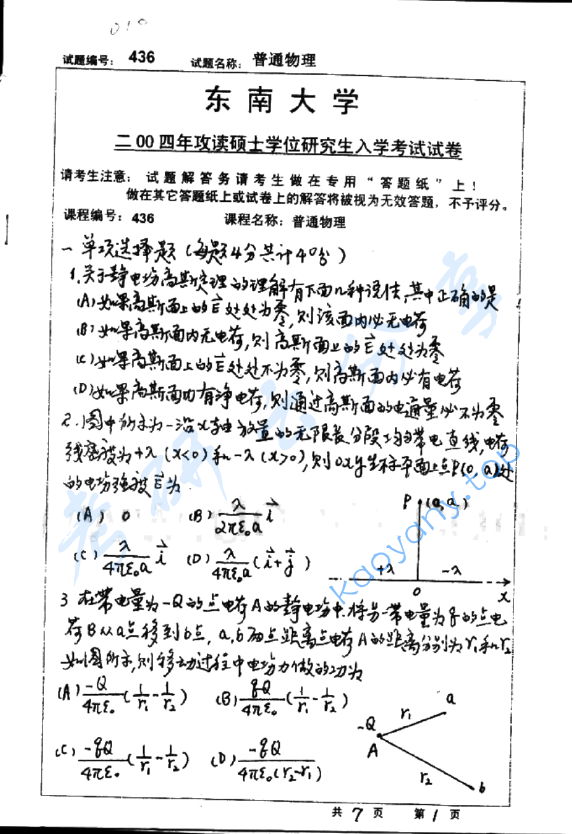 010
试题编号: 436 试题名称: 普通物理
东南大学
二00四年攻读硕士学位研究生入学考试试卷
请考生注意: 试题解答务请考生做在专用“答题纸”上!
做在其它答题纸上或试卷上的解答将被视为无效答题,不予评分。
课程编号: 436 课程名称: 普通物理
一 单项选择题 (每题4分共计40分)
1. 关于静电场高斯定理的理解有下面几种说法,其中正确的是
(A) 如果高斯面上的E⃗处处为零,则该面内必无电荷
(B) 如果高斯面内无电荷,则高斯面上的E⃗处处为零
(C) 如果高斯面上的E⃗处处不为零,则高斯面内必有电荷
(D) 如果高斯面内有净电荷,则通过高斯面的电通量必不为零
2. 图中所示为一沿x轴放置的无限长分段均匀带电直线,电荷
线密度为+λ (x<0) 和 -λ (x>0),则oxy坐标平面上点P(0, a)处
的电场强度E⃗为
(A) 0 (B) λ/2πε₀a i⃗
(C) λ/4πε₀a i⃗ (D) λ/4πε₀a (i⃗+j⃗)
P (0,a)
+λ -λ
0 x
3 在带电量为-Q的点电荷A的静电场中,将另一带电量为q的点电
荷B从a点移到b点, a,b两点距离点电荷A的距离分别为r₁和r₂
如图所示,则移动过程中电场力做的功为
(A) -Q/4πε₀ (1/r₁ - 1/r₂) (B) qQ/4πε₀ (1/r₁ - 1/r₂)
(C) -qQ/4πε₀ (1/r₁ - 1/r₂) (D) -qQ/4πε₀(r₂-r₁)
-Q A r₁ a
r₂ b
共 7 页 第 1 页
kaoyany.top